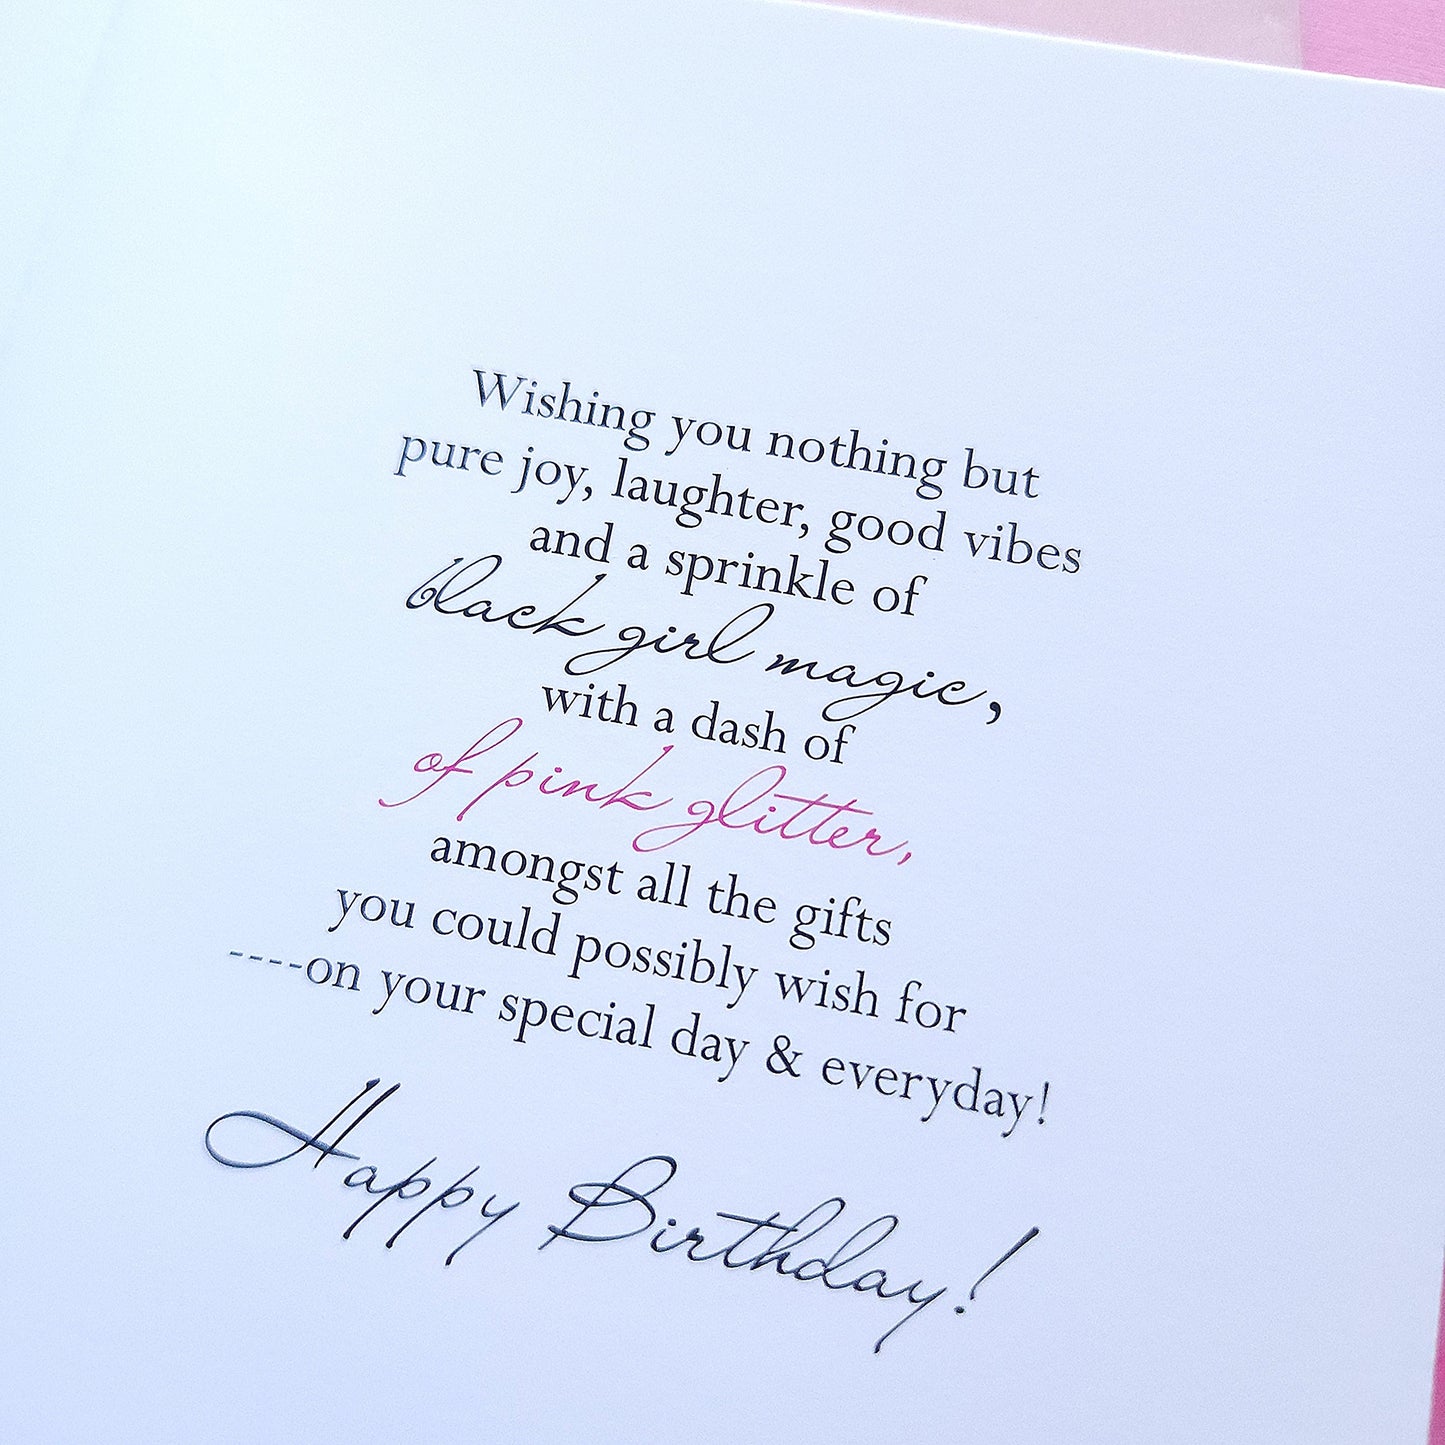 Wishing you nothing but
pure joy, laughter, good vibes
and a sprinkle of
black girl magic,
with a dash of
of pink glitter,
amongst all the gifts
you could possibly wish for
----on your special day & everyday!
Happy Birthday!